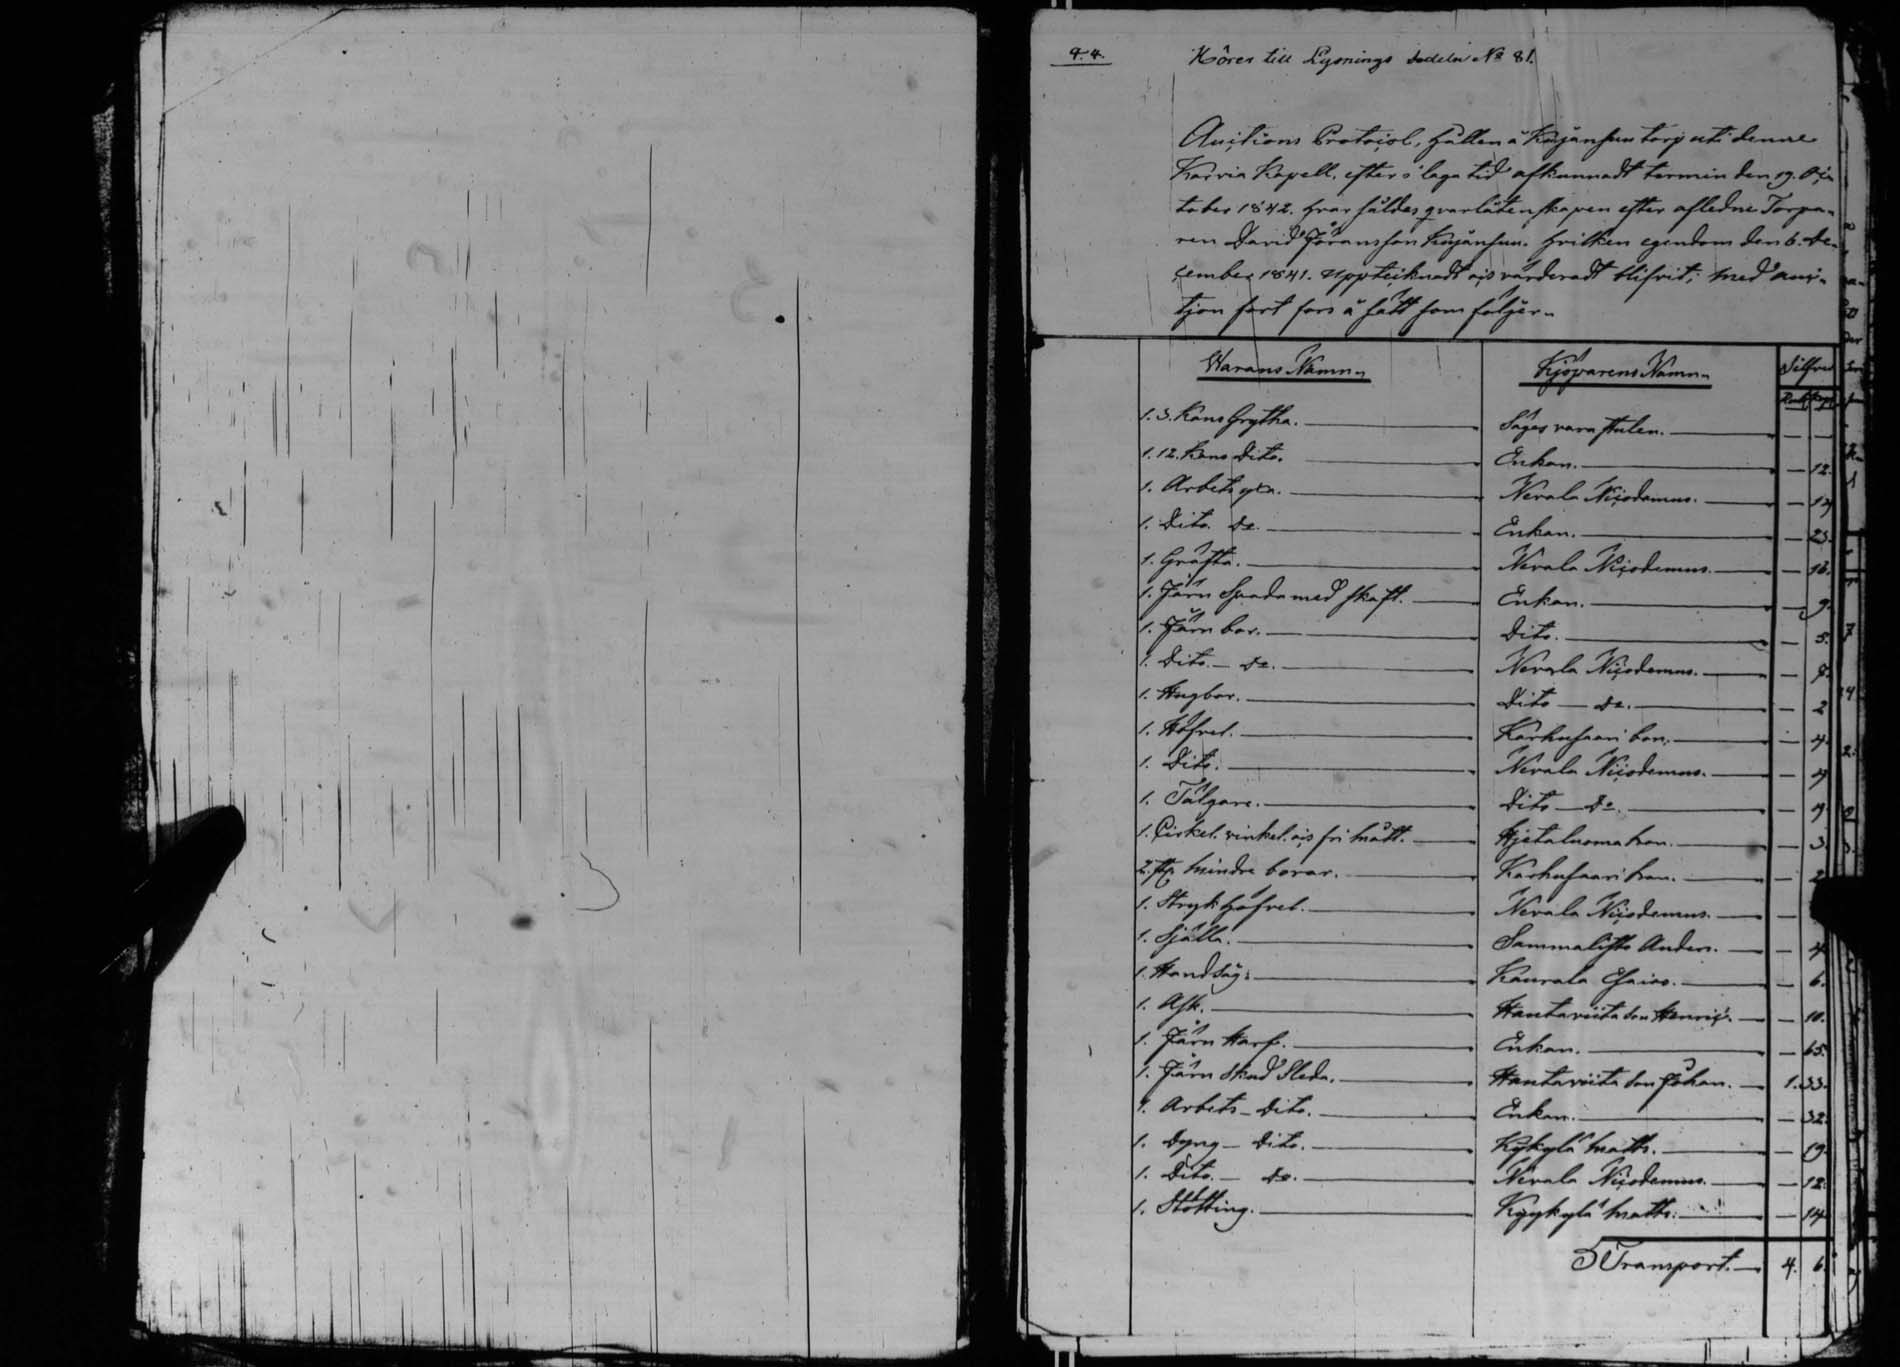 4.4. Hörer till Lysnings sedeln No 81.
Auctions Protocol, hållen å Kujansuu torp uti denne
Karvia Kapell, efter i laga tid afkunnadt termin den 19. Oc-
tober 1842. hvar såldes qvarlåtenskapen efter afledne Torpa-
ren David Jöransson Kujansuu. hvilken egendom den 6. De-
cember 1841. uppteiknadt och värderadt blifvit; med auc-
tjon fort fors å sätt som följer.
Warans Namn Kjöparens Namn Silfver
Rub. Kop.
1. 3. Kans Grytha. Säges vara stulen. — —
1. 12. Kans Dito. Enkan. — 12.
1. Arbets yxa. Nevala Nicodemus. — 14
1. Dito. Do. Enkan. — 23.
1. Gräfta. Nevala Nicodemus. — 16.
1. Järn Spada med skaft. Enkan. — 9.
1. Järn bor. Dito. — 5.
1. Dito. — Do. Nevala Nicodemus. — 8.
1. Hugbor. Dito — Do. — 2
1. Höfvel. Karhusaari bon. — 4.
1. Dito. Nevala Nicodemus. — 4
1. Tälgare. Dito — Do. — 4
1. Cirkel. vinkel. och fri mått. Hjetaluoma bon. — 3.
2. st. mindre borar. Karhusaari bon. — 2
1. Stryk höfvel. Nevala Nicodemus. —
1. Sjölla. Sammalisto Anders. — 4
1. Handsåg. Kaurala Esaias. — 6.
1. Ask. Hautaviita son Henric. — 10.
1. Järn Harf. Enkan. — 65.
1. Järn skod Sleda. Hautaviita son Johan. 1. 33.
1. Arbets — Dito. Enkan. — 32.
1. Dyng — Dito. Kykylä Matts. — 19
1. Dito. — Do. Nevala Nicodemus. — 12.
1. Stötting. Kyykylä Matts. — 14
Transport. 4. 6.